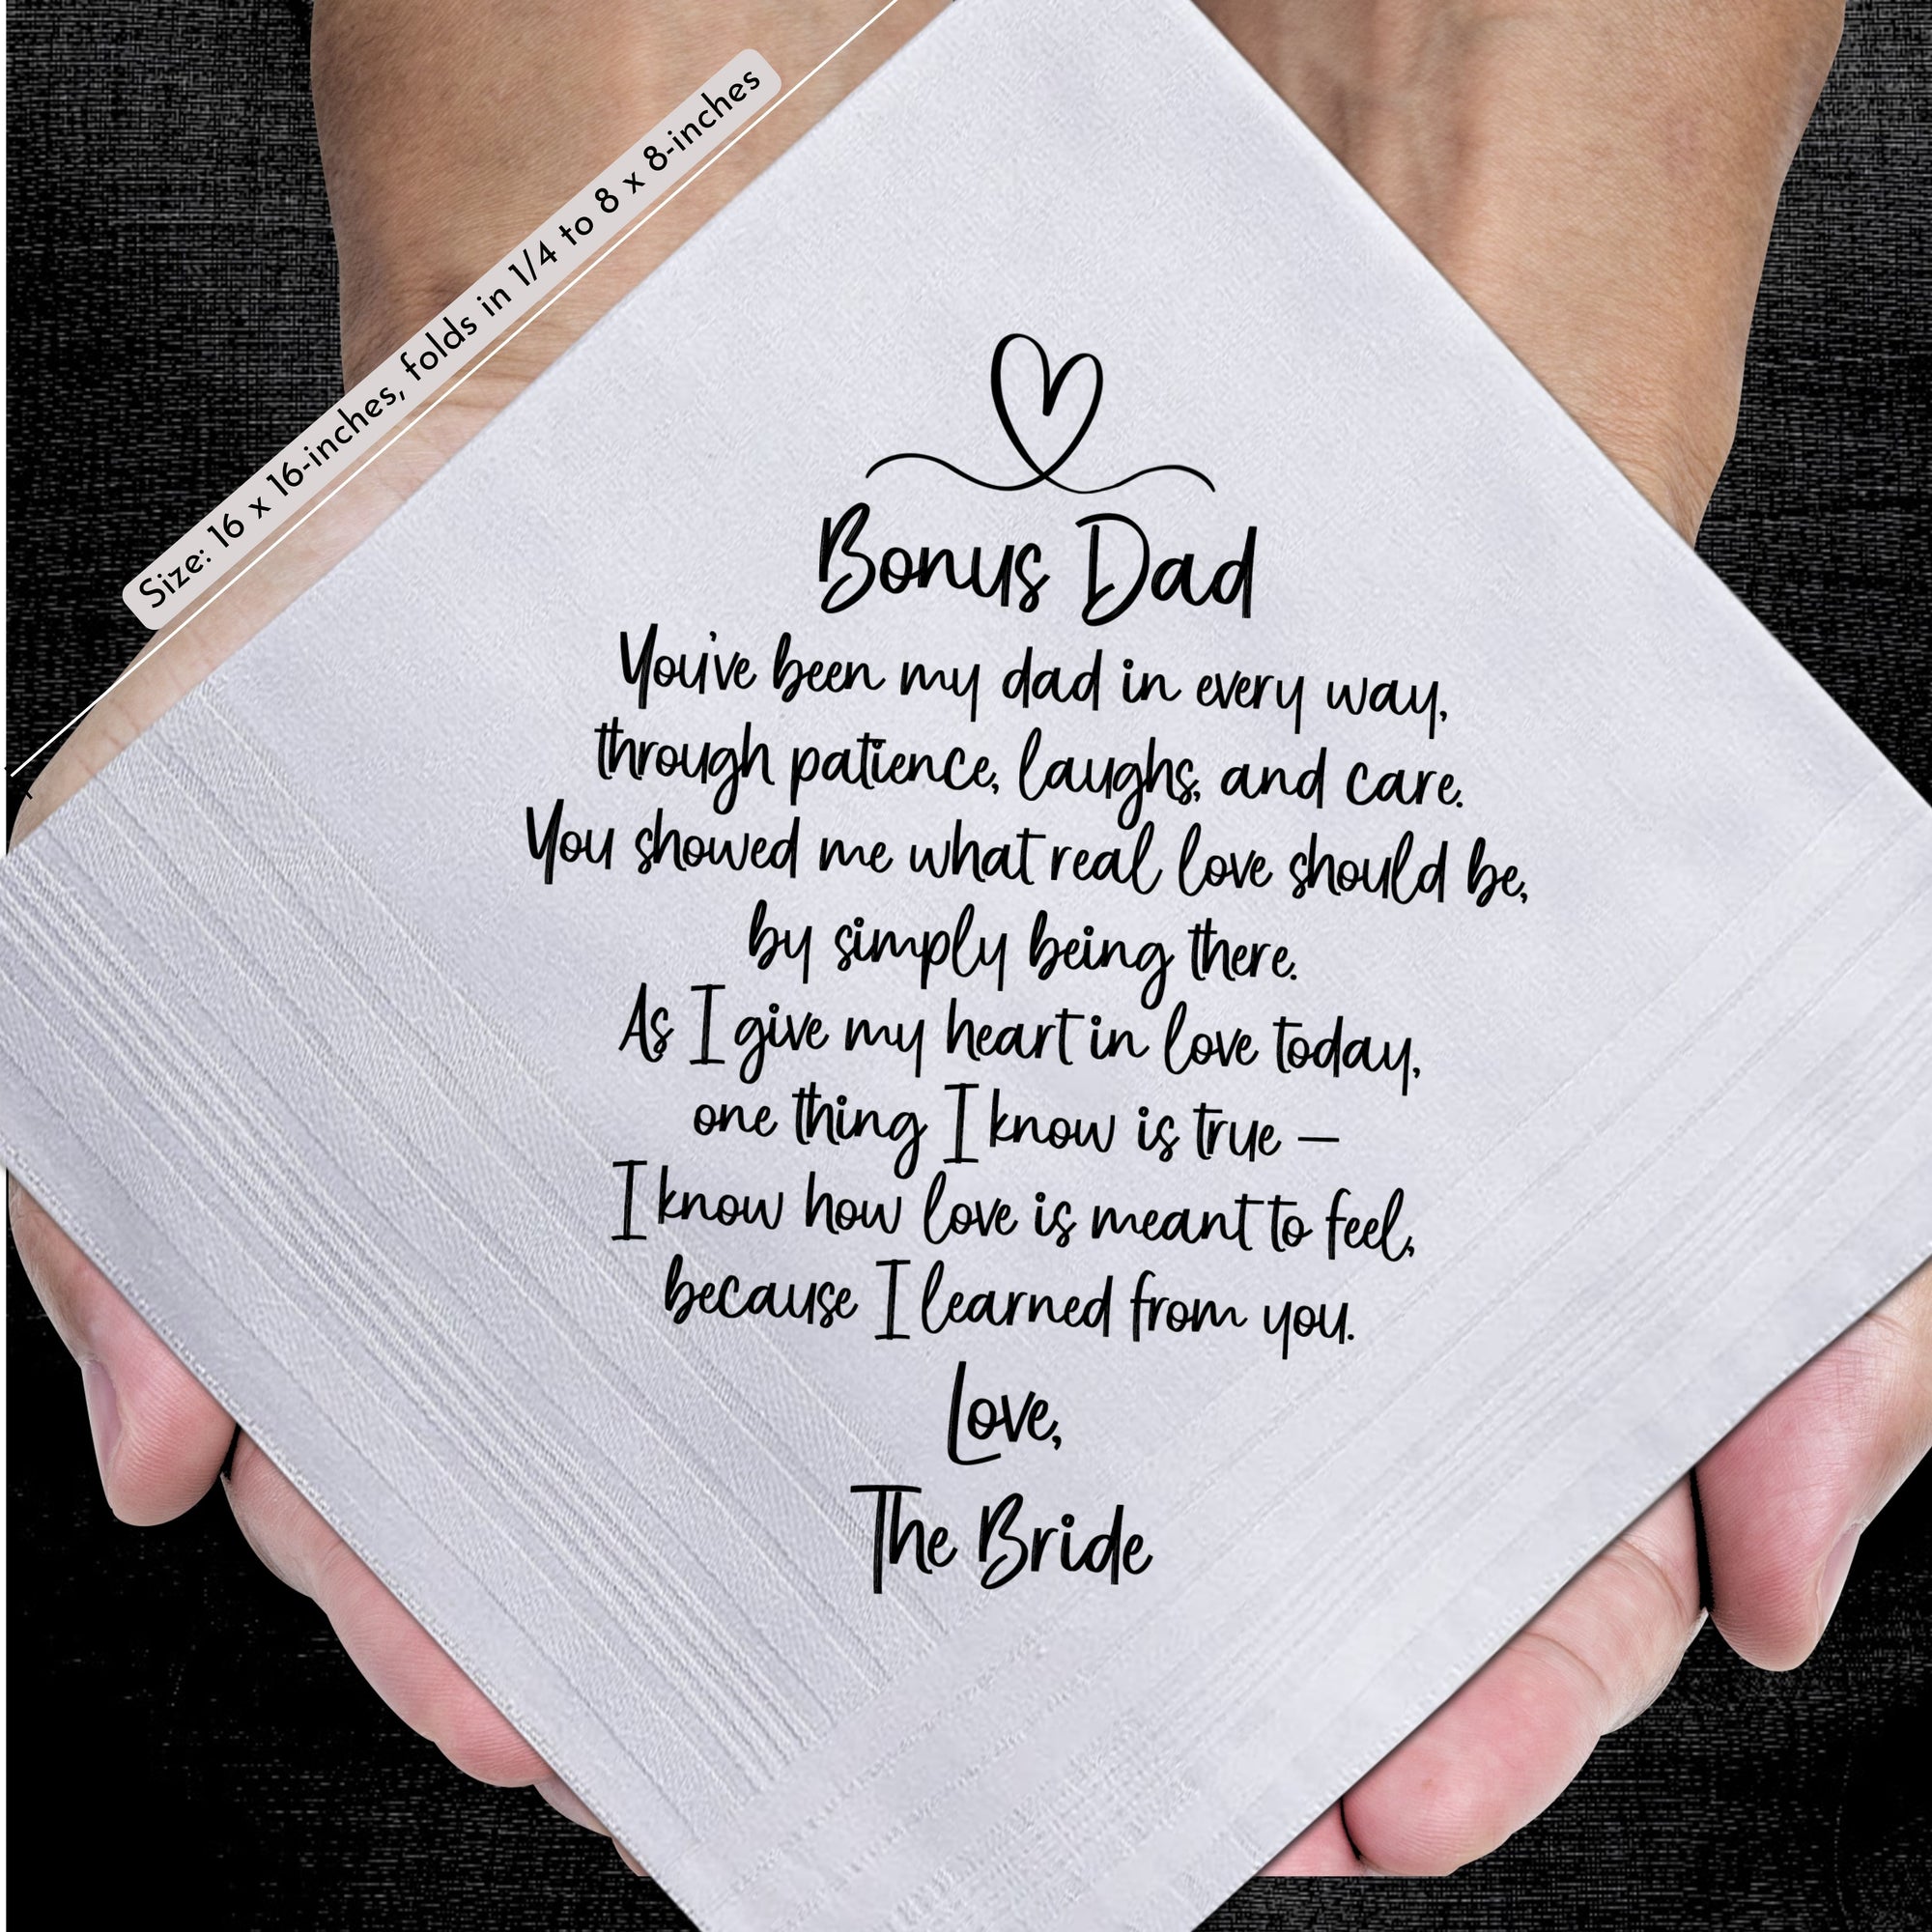 Size: 16 x 16-inches, folds in 1/4 to 8 x 8-inches
Bonus Dad
You've been my dad in every way,
through patience, laughs, and care.
You showed me what real love should be,
by simply being there.
As I give my heart in love today,
one thing I know is true –
I know how love is meant to feel,
because I learned from you.
Love,
The Bride